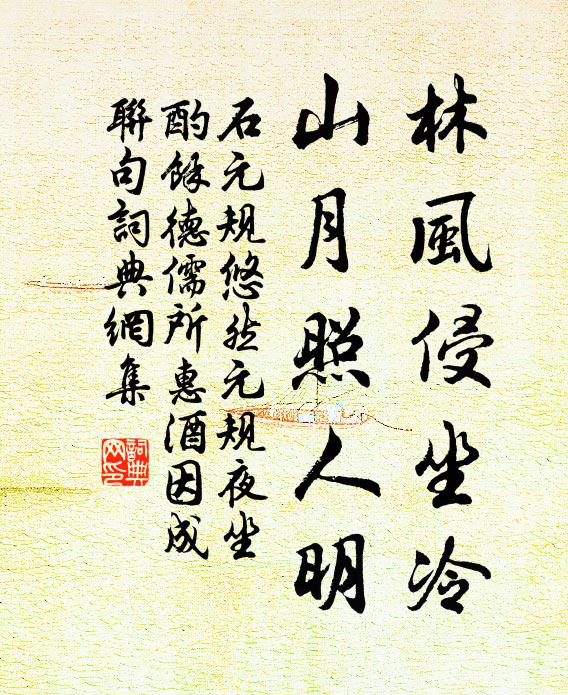 林風侵坐冷
山月照人明
石元規悠然元規夜坐
酌餘德儒所惠酒因成
聯句詞典網集
詞典
网印